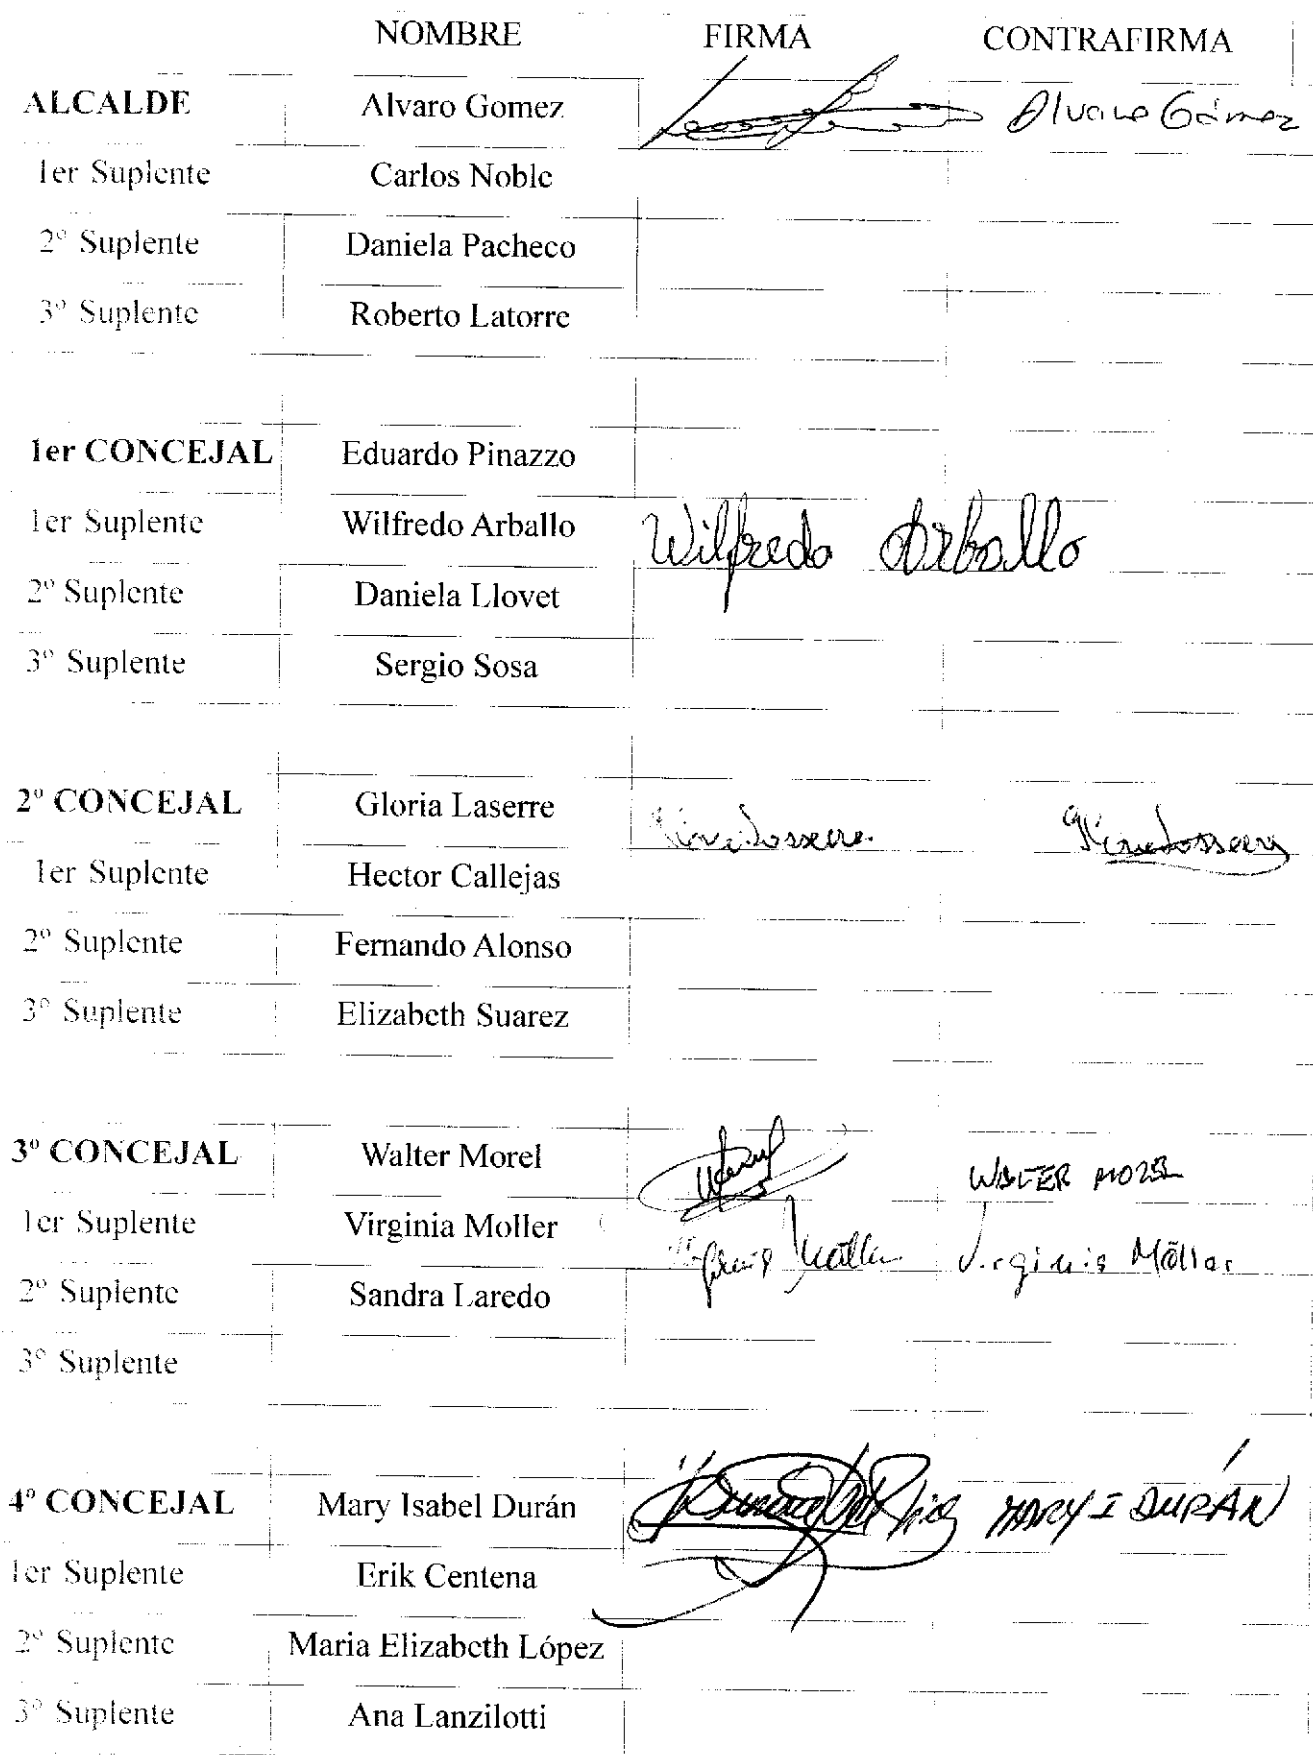 NOMBRE FIRMA CONTRAFIRMA
ALCALDE Alvaro Gomez Alvaro Gómez
1er Suplente Carlos Noble
2º Suplente Daniela Pacheco
3º Suplente Roberto Latorre
1er CONCEJAL Eduardo Pinazzo
1er Suplente Wilfredo Arballo Wilfredo Arballo
2º Suplente Daniela Llovet
3º Suplente Sergio Sosa
2º CONCEJAL Gloria Laserre
1er Suplente Hector Callejas
2º Suplente Fernando Alonso
3º Suplente Elizabeth Suarez
3º CONCEJAL Walter Morel WALTER MOREL
1er Suplente Virginia Moller Virginia Möller
2º Suplente Sandra Laredo
3º Suplente
4º CONCEJAL Mary Isabel Durán MARY I DURÁN
1er Suplente Erik Centena
2º Suplente Maria Elizabeth López
3º Suplente Ana Lanzilotti